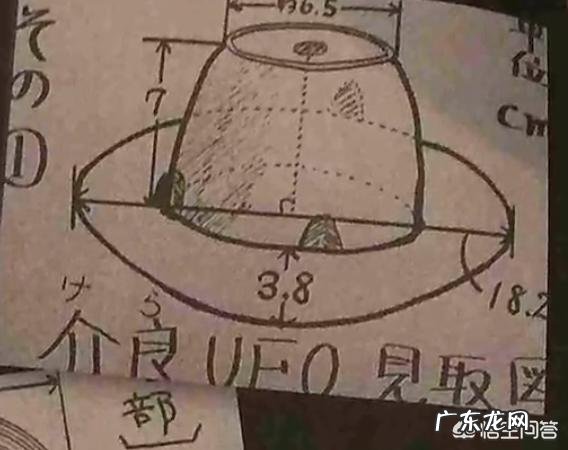 その①
6.5
位
cm
7
3.8
18.2
けら
介良UFO見取図
部
广东龙网
悟空问答